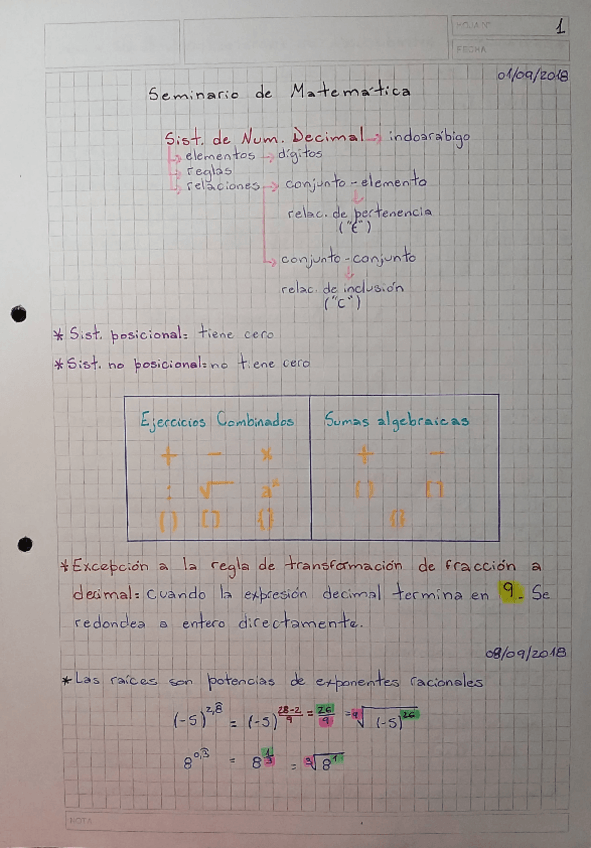 HOJA Nº 1
FECHA
01/09/2018
Seminario de Matemática
Sist. de Num. Decimal → indoarábigo
↳ elementos → dígitos
↳ reglas
↳ relaciones → conjunto - elemento
relac. de pertenencia
("∈")
↳ conjunto - conjunto
relac. de inclusión
("⊂")
* Sist. posicional: tiene cero
* Sist. no posicional: no tiene cero
Ejercicios Combinados Sumas algebraicas
+ - x + -
: √ () []
() [] {} {}
* Excepción a la regla de transformación de fracción a
decimal: Cuando la expresión decimal termina en 9. Se
redondea a entero directamente.
08/09/2018
* Las raíces son potencias de exponentes racionales
(-5)^2,8 = (-5)^(28-2)/9 = 26/9 = ⁹√(-5)^26
8^0,3 = 8^1/3 = √8^1
NOTA